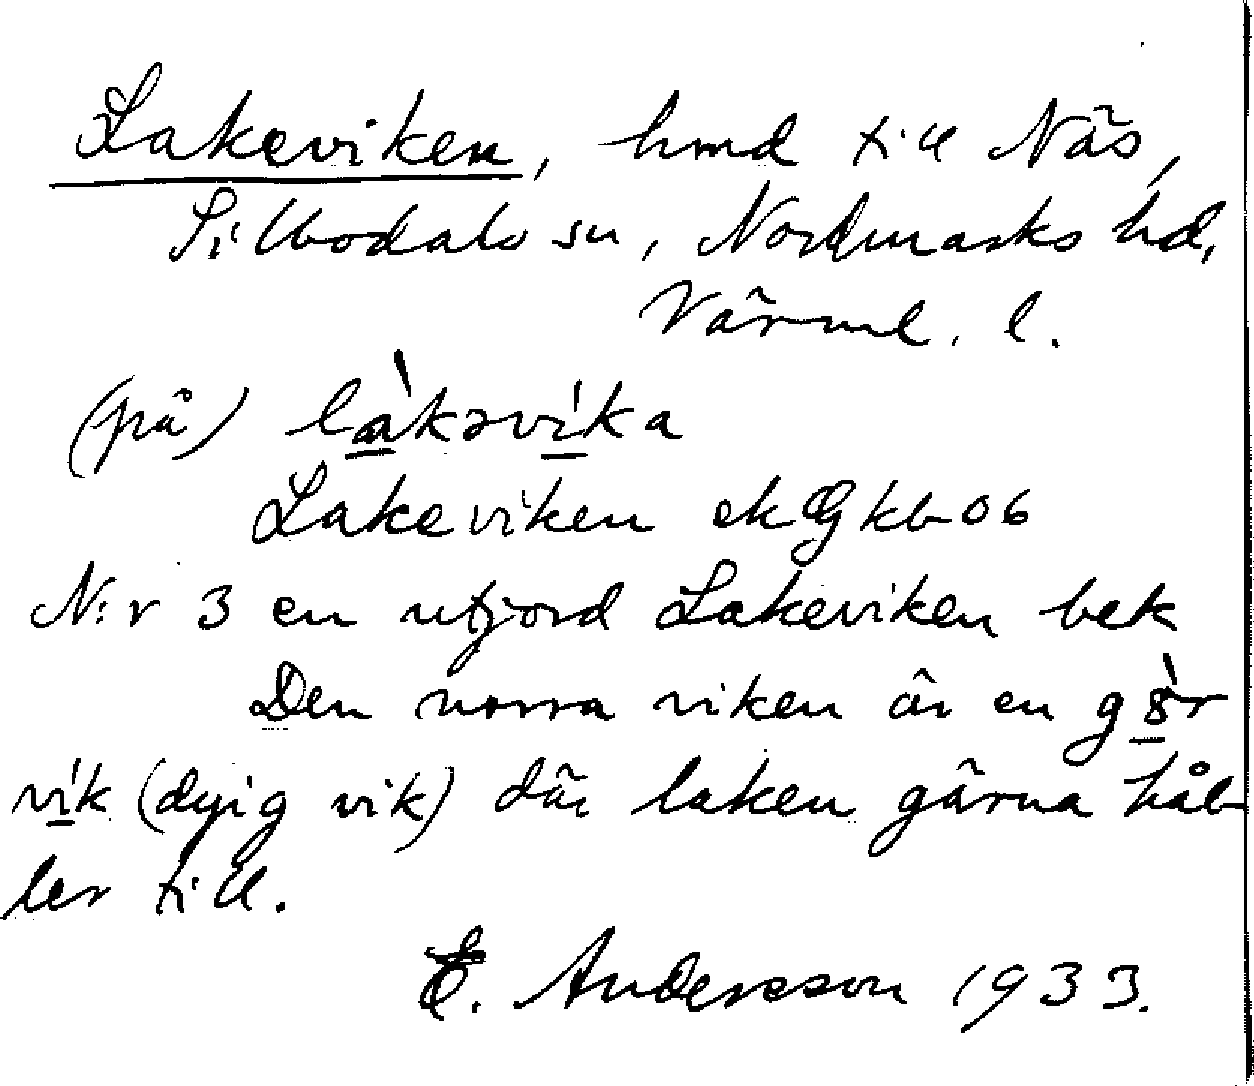 Lakeviken, hmd till Näs,
Silbodals sn, Nordmarks hd,
Värml. l.
(på) là̱kəví̱ka
Lakeviken ek Gkb 06
N:r 3 en utjord Lakeviken bek
Den norra viken är en g8̱̀r
ví̱k (dyig vik) där laken gärna hål-
ler till.
E. Andersson 1933.